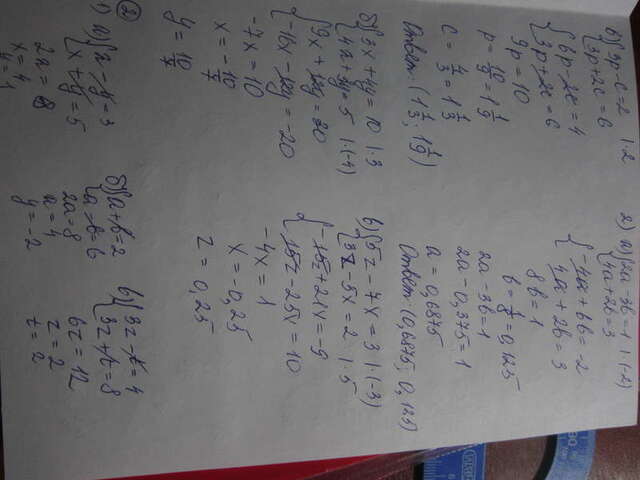 в) { 3p - c = 2 | · 2
3p + 2c = 6
{ 6p - 2c = 4
3p + 2c = 6
9p = 10
p = 10/9 = 1 1/9
c = 4/3 = 1 1/3
Ответ: (1 1/3; 1 1/9)
б) { 3x + 4y = 10 | · 3
4x + 3y = 5 | · (-4)
{ 9x + 12y = 30
-16x - 12y = -20
-7x = 10
x = - 10/7
y = 10/7
2) а) { 2a - 3b = 1 | · (-2)
4a + 2b = 3
{ -4a + 6b = -2
4a + 2b = 3
8b = 1
b = 1/8 = 0,125
2a - 3b = 1
2a - 0,375 = 1
a = 0,6875
Ответ: (0,6875; 0,125)
в) { 5z - 7x = 3 | · (-3)
3z - 5x = 2 | · 5
{ -15z + 21x = -9
15z - 25x = 10
-4x = 1
x = -0,25
z = 0,25
②
1) а) { x - y = 3
x + y = 5
2x = 8
x = 4
y = 1
б) { a + b = 2
a - b = 6
2a = 8
a = 4
y = -2
в) { 3z - t = 4
3z + t = 8
6z = 12
z = 2
t = 2